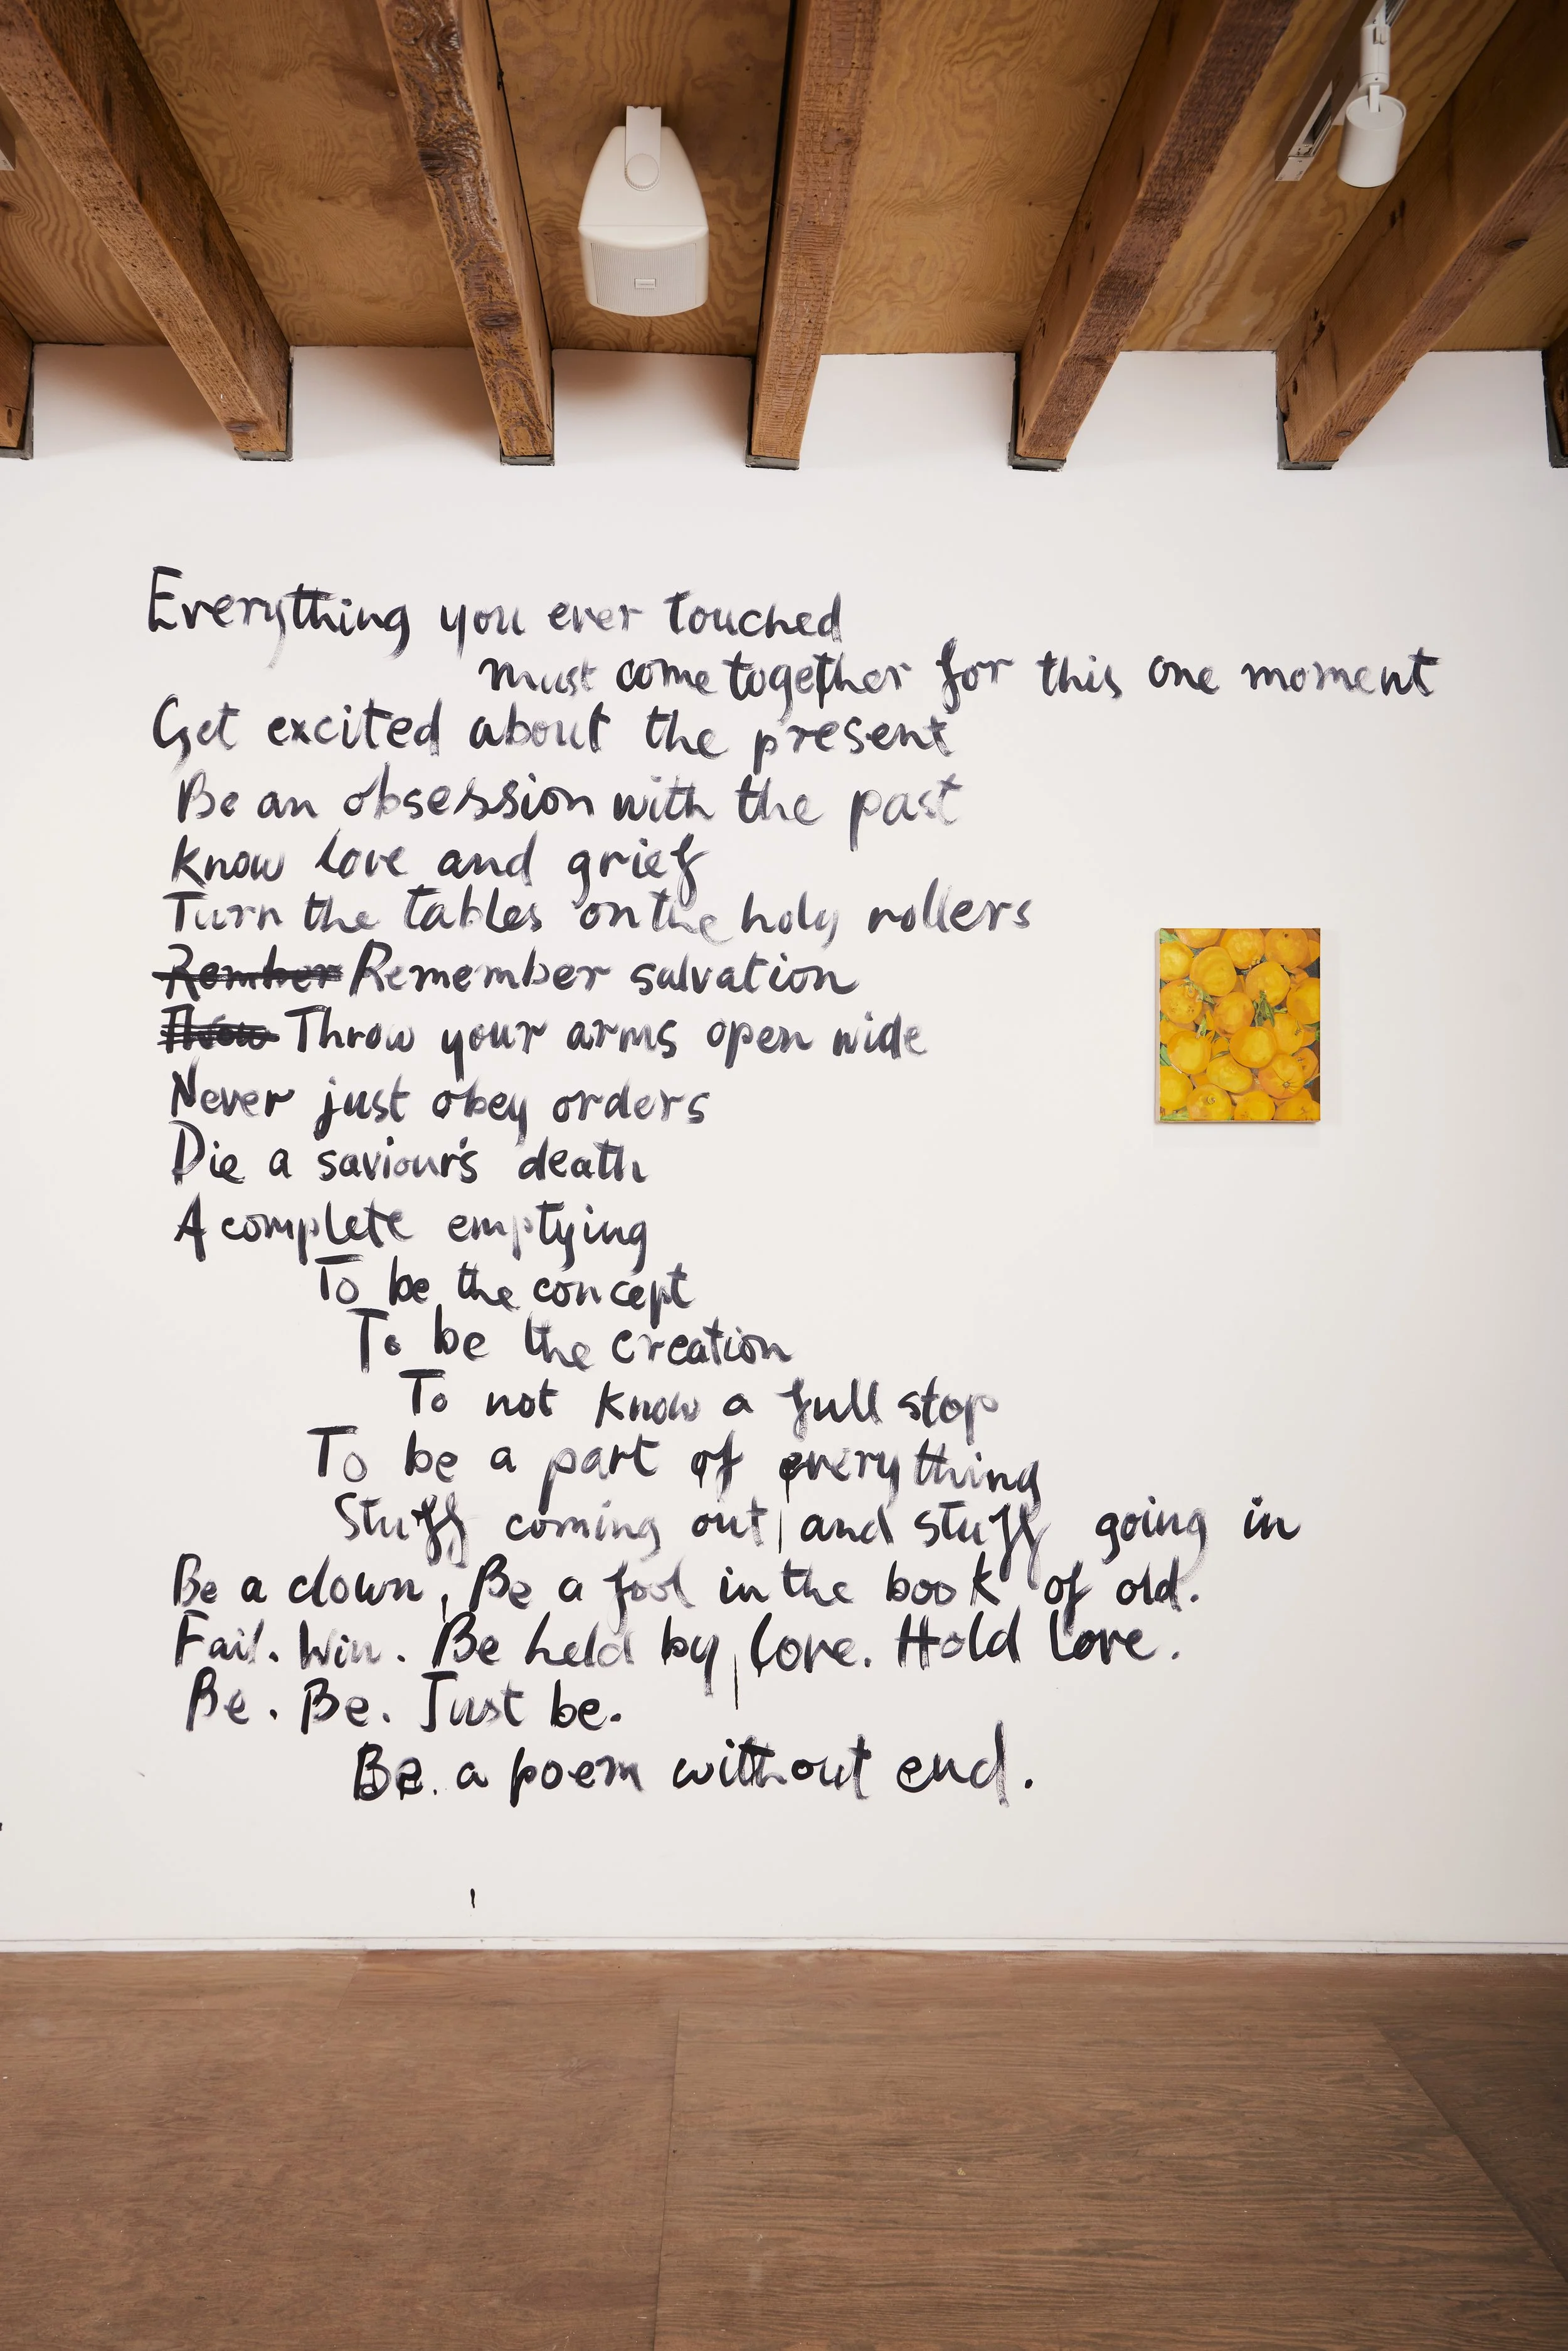 Everything you ever touched
must come together for this one moment
Get excited about the present
Be an obsession with the past
Know love and grief
Turn the tables on the holy rollers
Rember Remember salvation
Throw Throw your arms open wide
Never just obey orders
Die a saviour's death
A complete emptying
To be the concept
To be the creation
To not know a full stop
To be a part of everything
Stuff coming out and stuff going in
Be a clown, Be a fool in the book of old.
Fail. Win. Be held by love. Hold Love.
Be. Be. Just be.
Be. a poem without end.